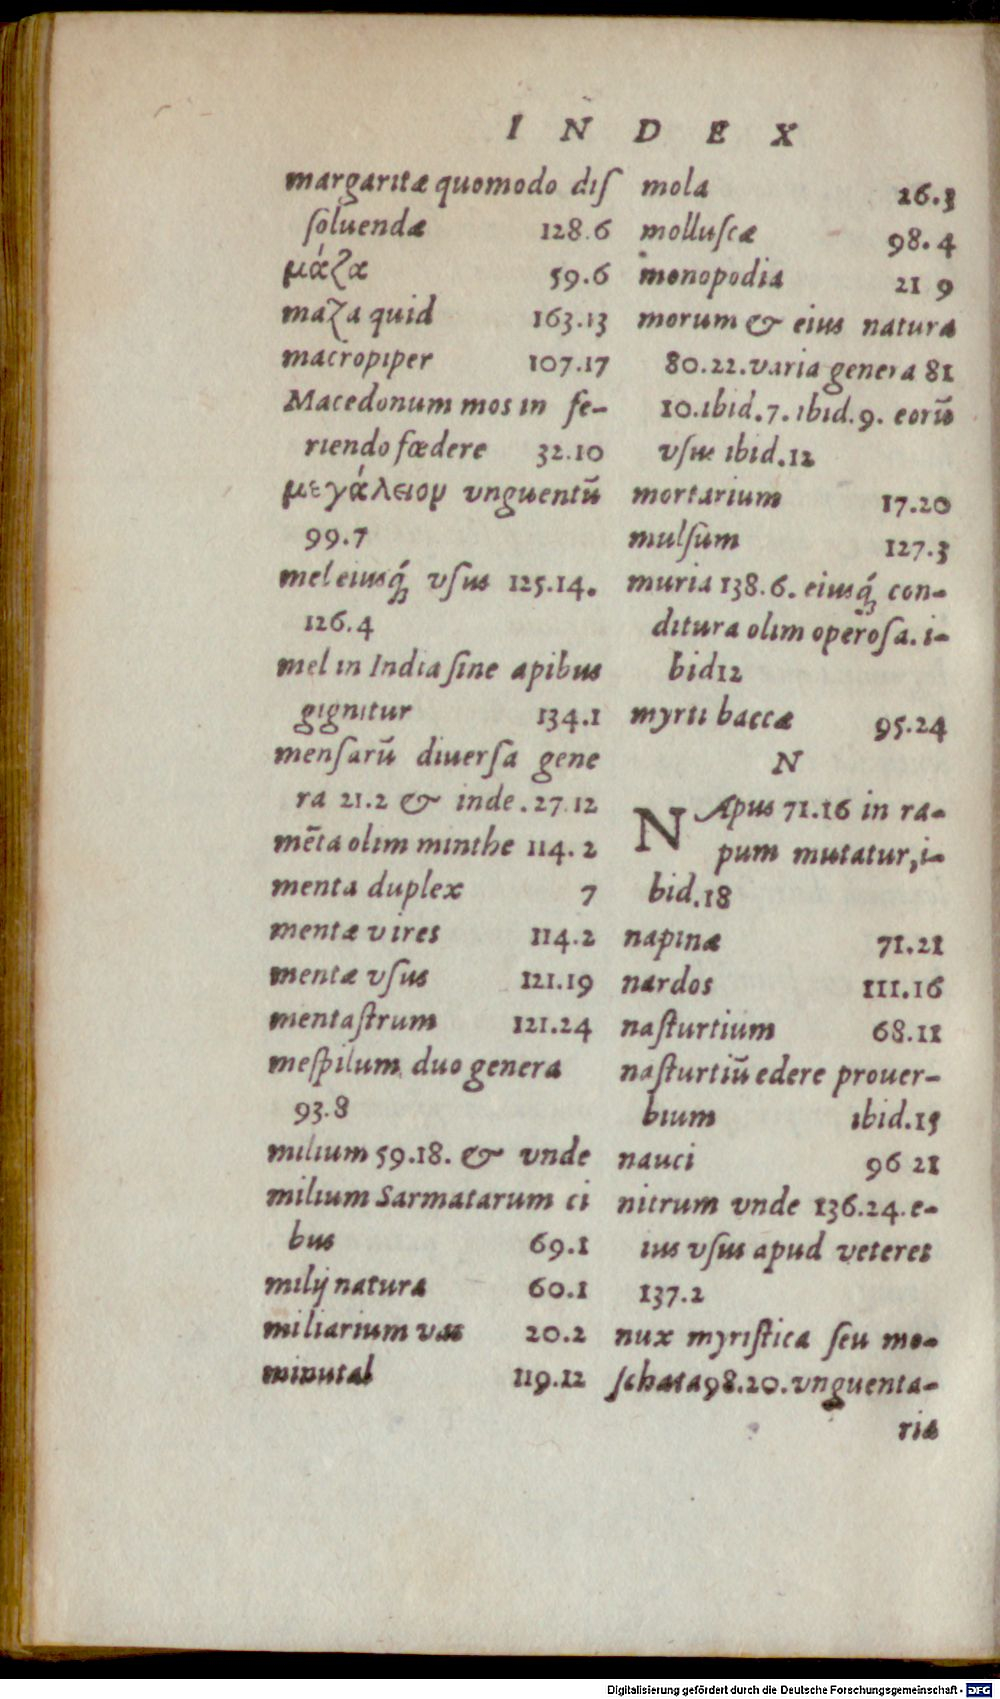 INDEX
margaritæ quomodo diſ
ſoluendæ 128.6
μάζα 59.6
maza quid 163.13
macropiper 107.17
Macedonum mos in fe-
riendo fœdere 32.10
μεγάλειον vnguentū
99.7
mel eiusq́ꝫ vſus 125.14.
126.4
mel in India ſine apibus
gignitur 134.1
menſarū diuerſa gene
ra 21.2 & inde.27.12
mēta olim minthe 114.2
menta duplex 7
mentæ vires 114.2
mentæ vſus 121.19
mentaſtrum 121.24
meſpilum duo genera
93.8
milium 59.18. & vnde
milium Sarmatarum ci
bus 69.1
milij natura 60.1
miliarium vas 20.2
minutal 119.12
mola 26.3
molluſcæ 98.4
monopodia 21 9
morum & eius natura
80.22.varia genera 81
10.ibid.7.ibid.9. eorū
vſus ibid.12
mortarium 17.20
mulſum 127.3
muria 138.6. eiusq́ꝫ con-
ditura olim operoſa.i-
bid12
myrti baccæ 95.24
N
NApus 71.16 in ra-
pum mutatur,i-
bid.18
napinæ 71.21
nardos 111.16
naſturtium 68.11
naſturtiū edere prouer-
bium ibid.15
nauci 96 21
nitrum vnde 136.24.e-
ius vſus apud veteres
137.2
nux myriſtica ſeu mo-
ſchata 98.20.vnguenta-
riæ
Digitalisierung gefördert durch die Deutsche Forschungsgemeinschaft - DFG